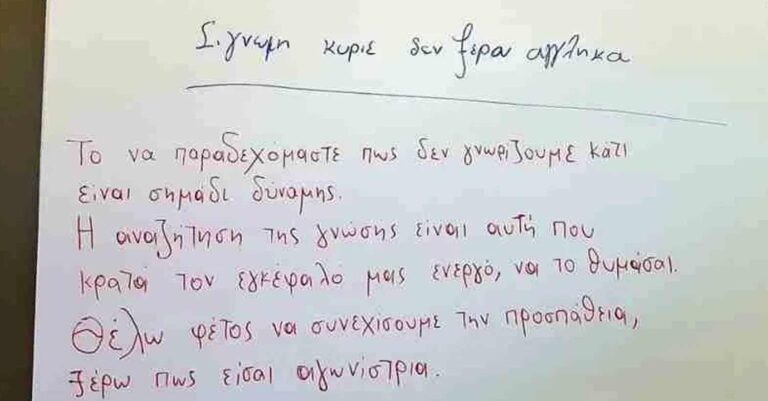 Σιγνωμη κυριε δεν ξερω αγγληκα
Το να παραδεχόμαστε πως δεν γνωρίζουμε κάτι
είναι σημάδι δύναμης.
Η αναζήτηση της γνώσης είναι αυτή που
κρατά τον εγκέφαλό μας ενεργό, να το θυμάσαι.
Θέλω φέτος να συνεχίσουμε την προσπάθεια,
ξέρω πως είσαι αγωνίστρια.